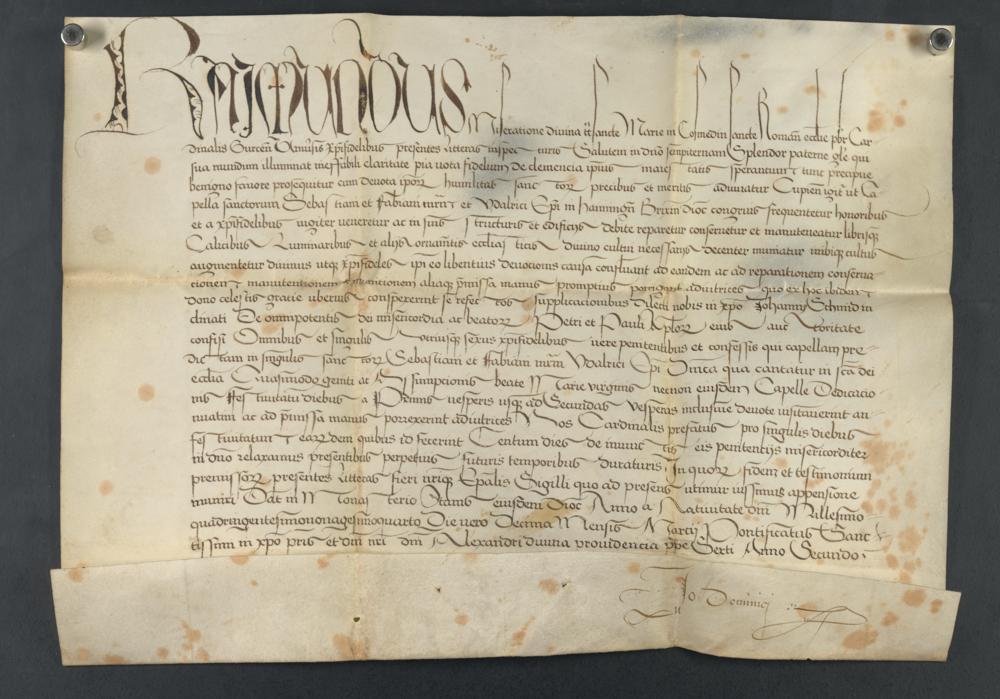 Raymundus Miseratione divina tt sancte Marie in Cosmedin sancte Romane ecclie pbr Car
dinalis Gurcen Xpifidelibus presentes litteras inspecturis Salutem in dno sempiternam Splendor paterne gle qui
sua mundum illuminat ineffabili claritate pia vota fidelium de clemencia ipius maiestatis sperantium tunc precipue
benigno favore prosequitur cum devota ipor humilitas sanctor precibus et meritis adiuvatur Cupien igit ut Ca
pella sanctorum Sebastiani et Fabiani mrm et Vdalrici Epi in dioc congruis frequentetur honoribus
et a xpifidelibus iugiter veneretur ac in suis structuris et edificijs debite reparetur conservetur et manuteneatur librisq
Calicibus Luminaribus et alijs ornamtis ecclesiasticis divino cultui necessarijs decenter muniatur inibiq cultus
augmentetur divinus utq xpifideles ipi eo libentius devocionis causa confluant ad eandem ac ad reparationem conserva
tionem manutentionem aliaq pmissa manus promptius porrigant adiutrices quo ex hoc ibidem
dono celestis gracie uberius conspexerint se refectos supplicacionibus dilecti nobis in xpo Johannis Schmid in
clinati De omnipotentis dei misericordia ac beator Petri et Pauli Aplor eius auctoritate
confisi Omnibus et singulis utriusq sexus xpifidelibus vere penitentibus et confessis qui capellam pre
dictam in singulis sanctor Sebastiani et Fabiani mrm Vdalrici Epi Dnica qua cantatur in sca dei
ecclia Quasimodo geniti ac Assumpcionis beate Marie virginis necnon eiusdem Capelle Dedicacio
nis Festivitatu diebus a Primis vesperis usq ad Secundas vesperas inclusive devote visitaverint an
nuatim ac ad pmissa manus porrexerint adiutrices Nos Cardinalis prefatus pro singulis diebus
festivitatum earundem quibus id fecerint Centum dies de iniunctis eis penitentijs misericorditer
in dno relaxamus presentibus perpetuis futuris temporibus duraturis In quor fidem et testimonium
premissor presentes litteras fieri nriq Sigilli quo ad presens utimur iussimus appensione
muniri Dat in Monasterio eiusdem Dioc Anno a Nativitate dni Millesimo
quadringentesimononagesimoquarto Die vero Decima Mensis Marcij Pontificatus Sanc
tissimi in xpo pris et dni nri dni Alexandri divina providencia ppe Sexti Anno Secundo
Jo Dominici